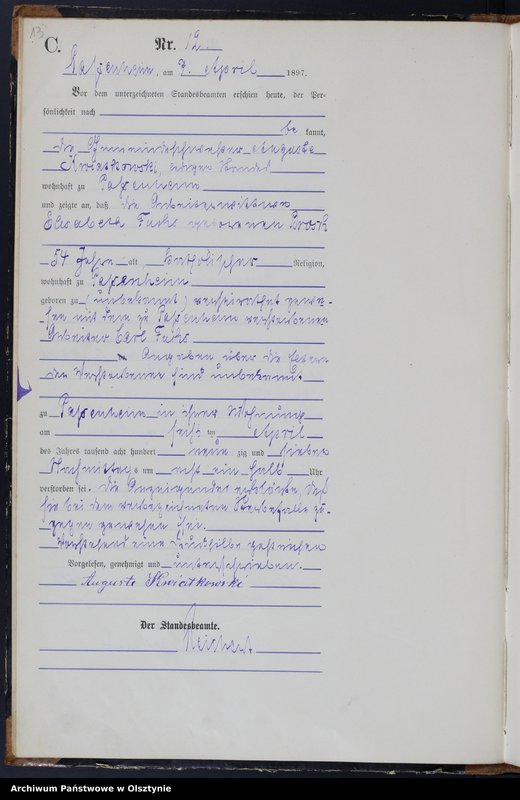 13
C.
Nr. 12
Passenheim, am 7. April 1897.
Vor dem unterzeichneten Standesbeamten erschien heute, der Per-
sönlichkeit nach
be kannt,
die Gemeindeschwester Auguste
Kwiatkowski, ledigen Standes
wohnhaft zu Passenheim
und zeigte an, daß die Arbeiterwittwe
Elisabeth Fuchs geborenen Brosk
54 Jahre alt, katholischer Religion,
wohnhaft zu Passenheim
geboren zu (unbekannt) verheirathet gewe-
sen mit dem zu Passenheim verstorbenen
Arbeiter Carl Fuchs
Angaben über die Eltern
der Verstorbenen sind unbekannt.
zu Passenheim in ihrer Wohnung
am April
des Jahres tausend acht hundert neun zig und sieben
Nachmittags um acht ein halb Uhr
verstorben sei. Die Anzeigende erklärte, daß
sie bei dem vorbezeichneten Sterbefalle zu-
gegen gewesen sei.
Vorstehend eine Druchsilbe gestrichen
Vorgelesen, genehmigt und unterschrieben.
Auguste Kwiatkowski
Der Standesbeamte.
Reichert
Archiwum Państwowe w Olsztynie